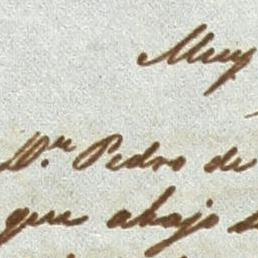 Muy
Dn. Pedro de
que abajo